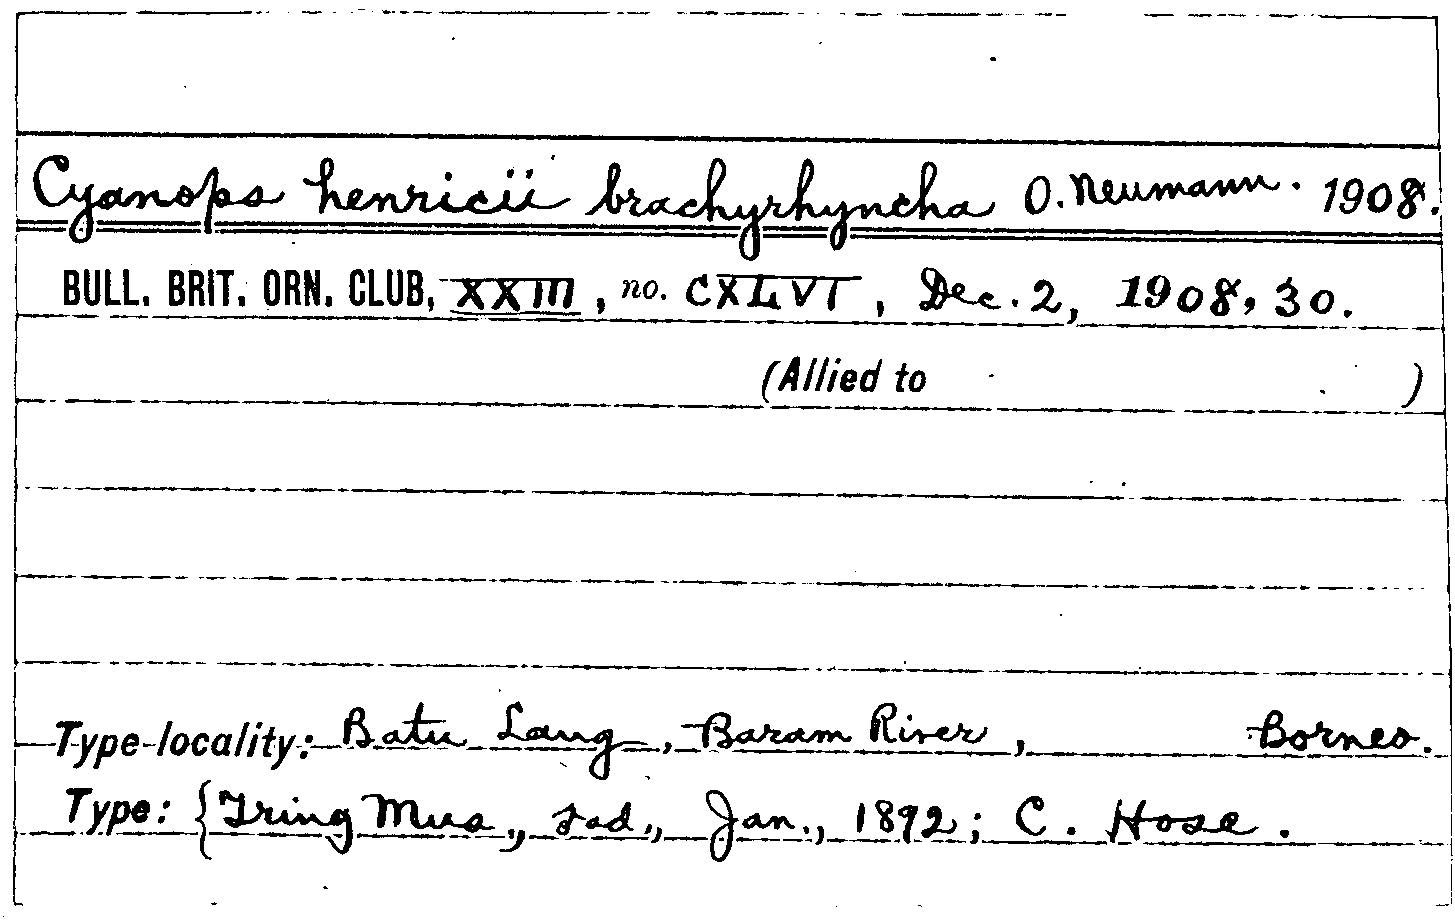 Cyanops henricii brachyrhyncha O. Neumann. 1908.
BULL. BRIT. ORN. CLUB, XXIII, no. CXLVI, Dec. 2, 1908, 30.
(Allied to )
Type-locality: Batu Lang, Baram River, Borneo.
Type: {Tring Mus., ad., Jan., 1892; C. Hose.